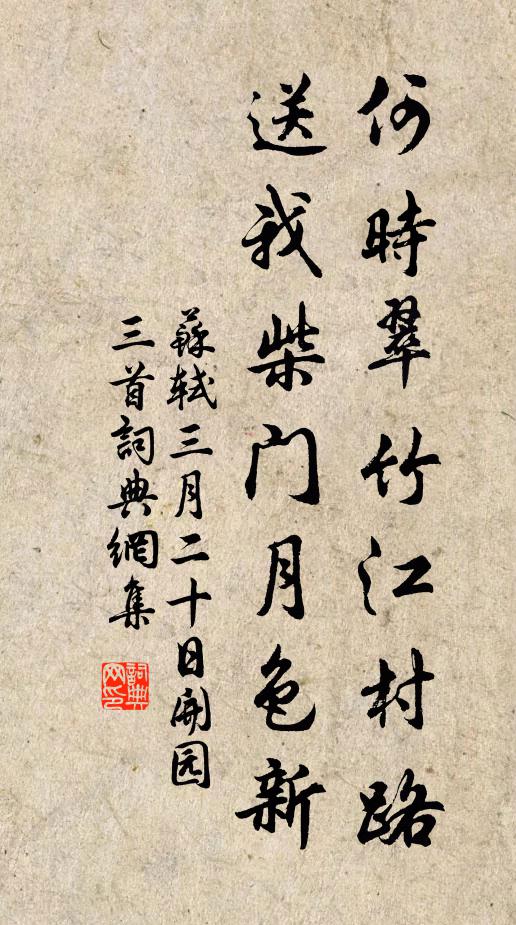 何時翠竹江村路
送我柴門月色新
蘇軾三月二十日開园
三首詞典網集
詞典
网印